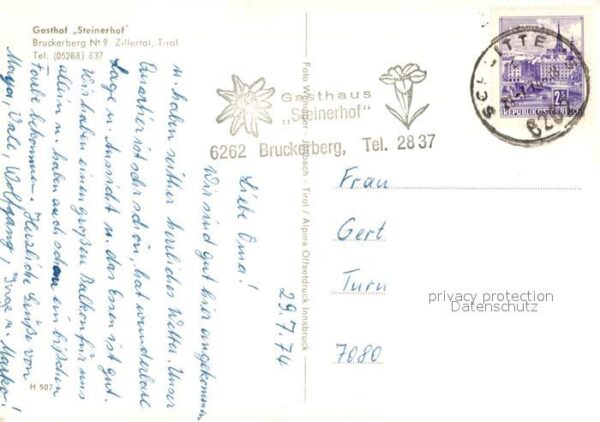 Gasthof „Steinerhof"
Bruckerberg Nº 9 Zillertal, Tirol
Tel. (05288) 837
29.7.74
Liebe Oma!
Wir sind gut hier angekommen
u. haben seither herrliches Wetter. Unser
Quartier ist sehr schön, hat wunderbare
Lage u. Aussicht u. das Essen ist gut.
Wir haben einen großen Balkon für uns
allein u. haben auch schon ein bißchen
Farbe bekommen. Herzliche Grüße von
Vale, Wolfgang, Inge u. Marko!
H 507
Foto
Tirol / Alpina Offsetdruck Innsbruck
Gasthaus
„Steinerhof"
6262 Bruckerberg, Tel. 2837
SCHLITTE
REPUBLIK
2.50
Frau
Gert
Turn
7080
privacy protection
Datenschutz